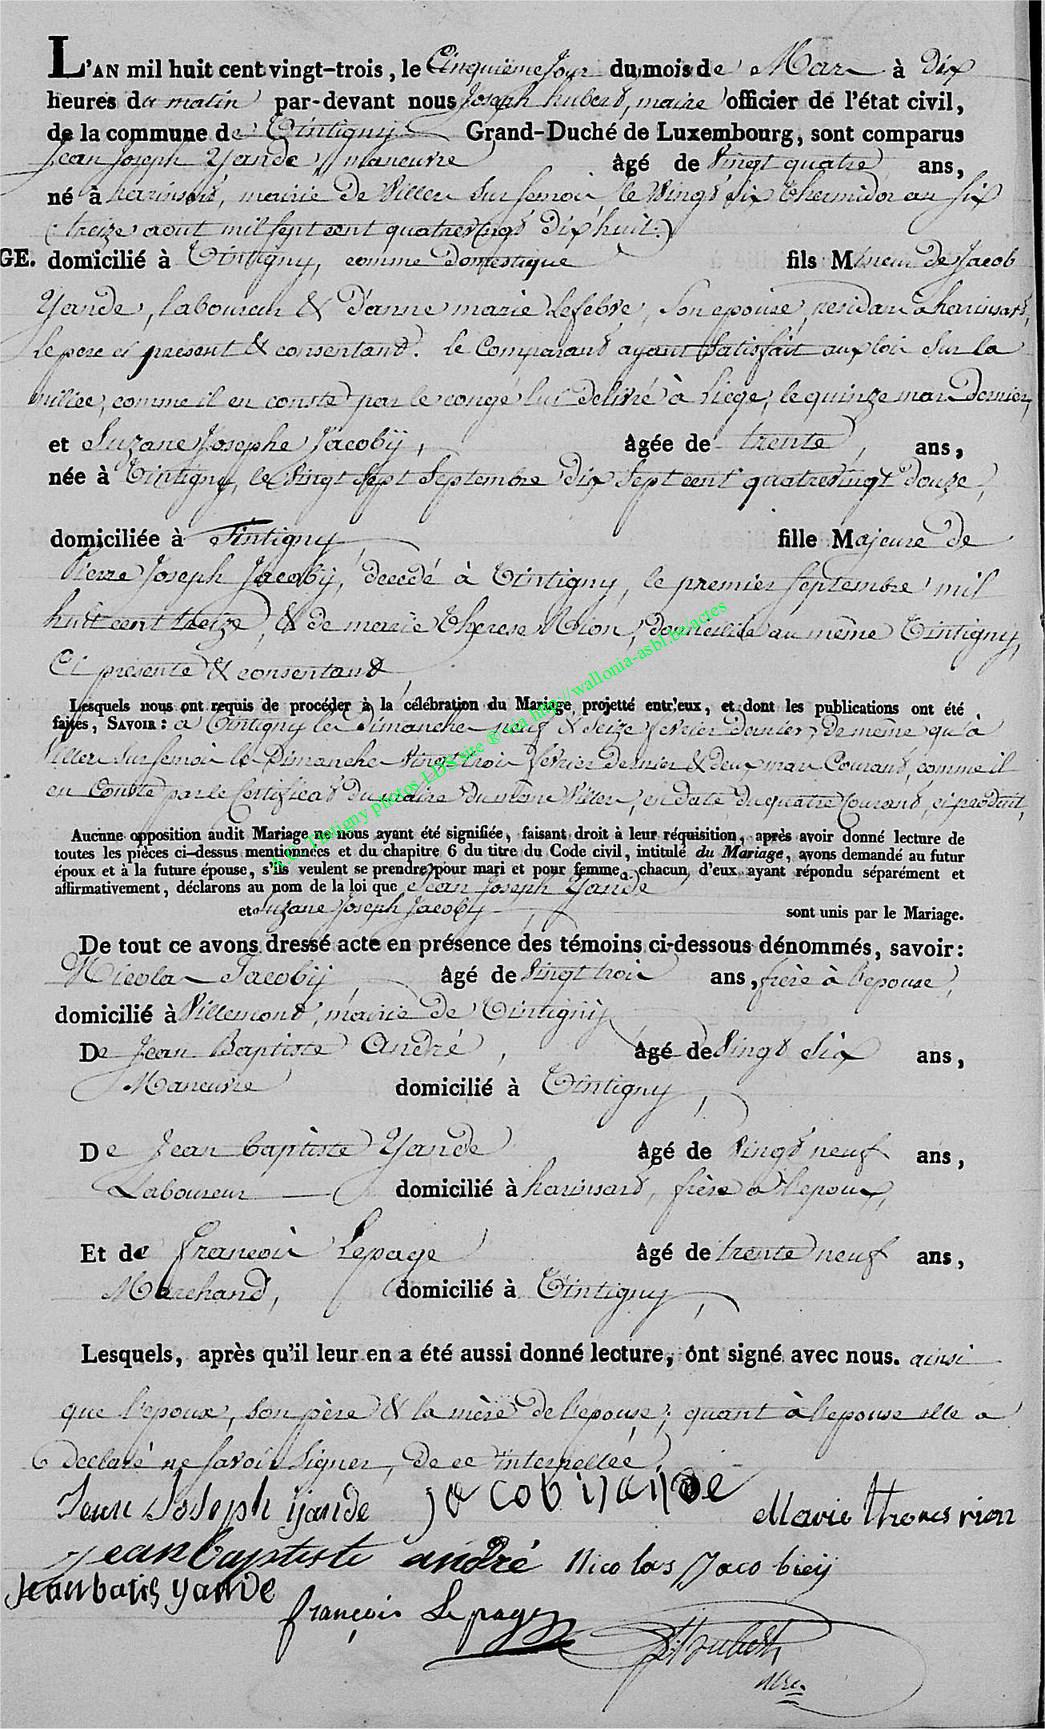 L'AN mil huit cent vingt-trois, le Cinquième Jour du mois de Mars à Dix
heures du matin par-devant nous Joseph hubert, maire officier de l'état civil,
de la commune de Tintigny Grand-Duché de Luxembourg, sont comparus
Jean Joseph Yande maneuvre âgé de vingt quatre ans,
né à harinsart, mairie de Villers sur semois le vingt six thermidor an six
(treize aout mil sept cent quatrevingt dix huit.)
GE. domicilié à Tintigny, comme domestique fils Mineur de Jacob
Yande, laboureur & d'anne marie Lefebvre, son epouse, residans à harinsart,
le pere ci present & consentant. le Comparant ayant satisfait aux lois sur la
milice, comme il en conste par le congé lui delivré à Liege, le quinze mars dernier,
et Suzane Josephe Jacobÿ, âgée de trente, ans,
née à Tintigny, le vingt sept septembre dix sept cent quatrevingt douze,
domiciliée à Tintigny fille Majeure de
Pierre Joseph Jacobÿ, decedé à Tintigny, le premier septembre mil
huit cent treize, & de marie therese Rion, domiciliée au même Tintigny,
Ci presente & consentant,
Lesquels nous ont requis de procéder à la célébration du Mariage projetté entr'eux, et dont les publications ont été
faites, SAVOIR : a Tintigny les Dimanche neuf & seize fevrier dernier, de même qu'à
Villers sur semois les Dimanche vingt trois fevrier dernier & deux mars Courant, comme il
en Conste par le Certificat du maire du même Villers, en date du quatre Courant, ci produit,
Aucune opposition audit Mariage ne nous ayant été signifiée, faisant droit à leur réquisition, après avoir donné lecture de
toutes les pièces ci-dessus mentionnées et du chapitre 6 du titre du Code civil, intitulé du Mariage, avons demandé au futur
époux et à la future épouse, s'ils veulent se prendre pour mari et pour femme, chacun d'eux ayant répondu séparément et
affirmativement, déclarons au nom de la loi que Jean Joseph Yande
et Suzane Joseph Jacobÿ sont unis par le Mariage.
De tout ce avons dressé acte en présence des témoins ci-dessous dénommés, savoir:
Nicolas Jacobÿ, âgé de vingt trois ans, frère à l'epouse,
domicilié à Villemont, mairie de Tintigny
De Jean Baptiste André, âgé de vingt six ans,
Maneuvre domicilié à Tintigny,
De Jean baptiste Yande âgé de vingt neuf ans,
Laboureur domicilié à harinsard, frère à l'epoux,
Et de François Lepage âgé de trente neuf ans,
Marchand, domicilié à Tintigny,
Lesquels, après qu'il leur en a été aussi donné lecture, ont signé avec nous. ainsi
que l'epoux, son père & la mère de l'epouse; quant à l'epouse elle a
declaré ne savoir signer, de ce interpellée.
Jean Joseph yande jacob yande Marie theres rion
jean baptiste andré Nicolas Jacobieij
Jean batis yande
françois Lepage
J. Houbert
Mre
A.C. Tintigny photos LDS site ® via http://wallonia-asbl.be/actes